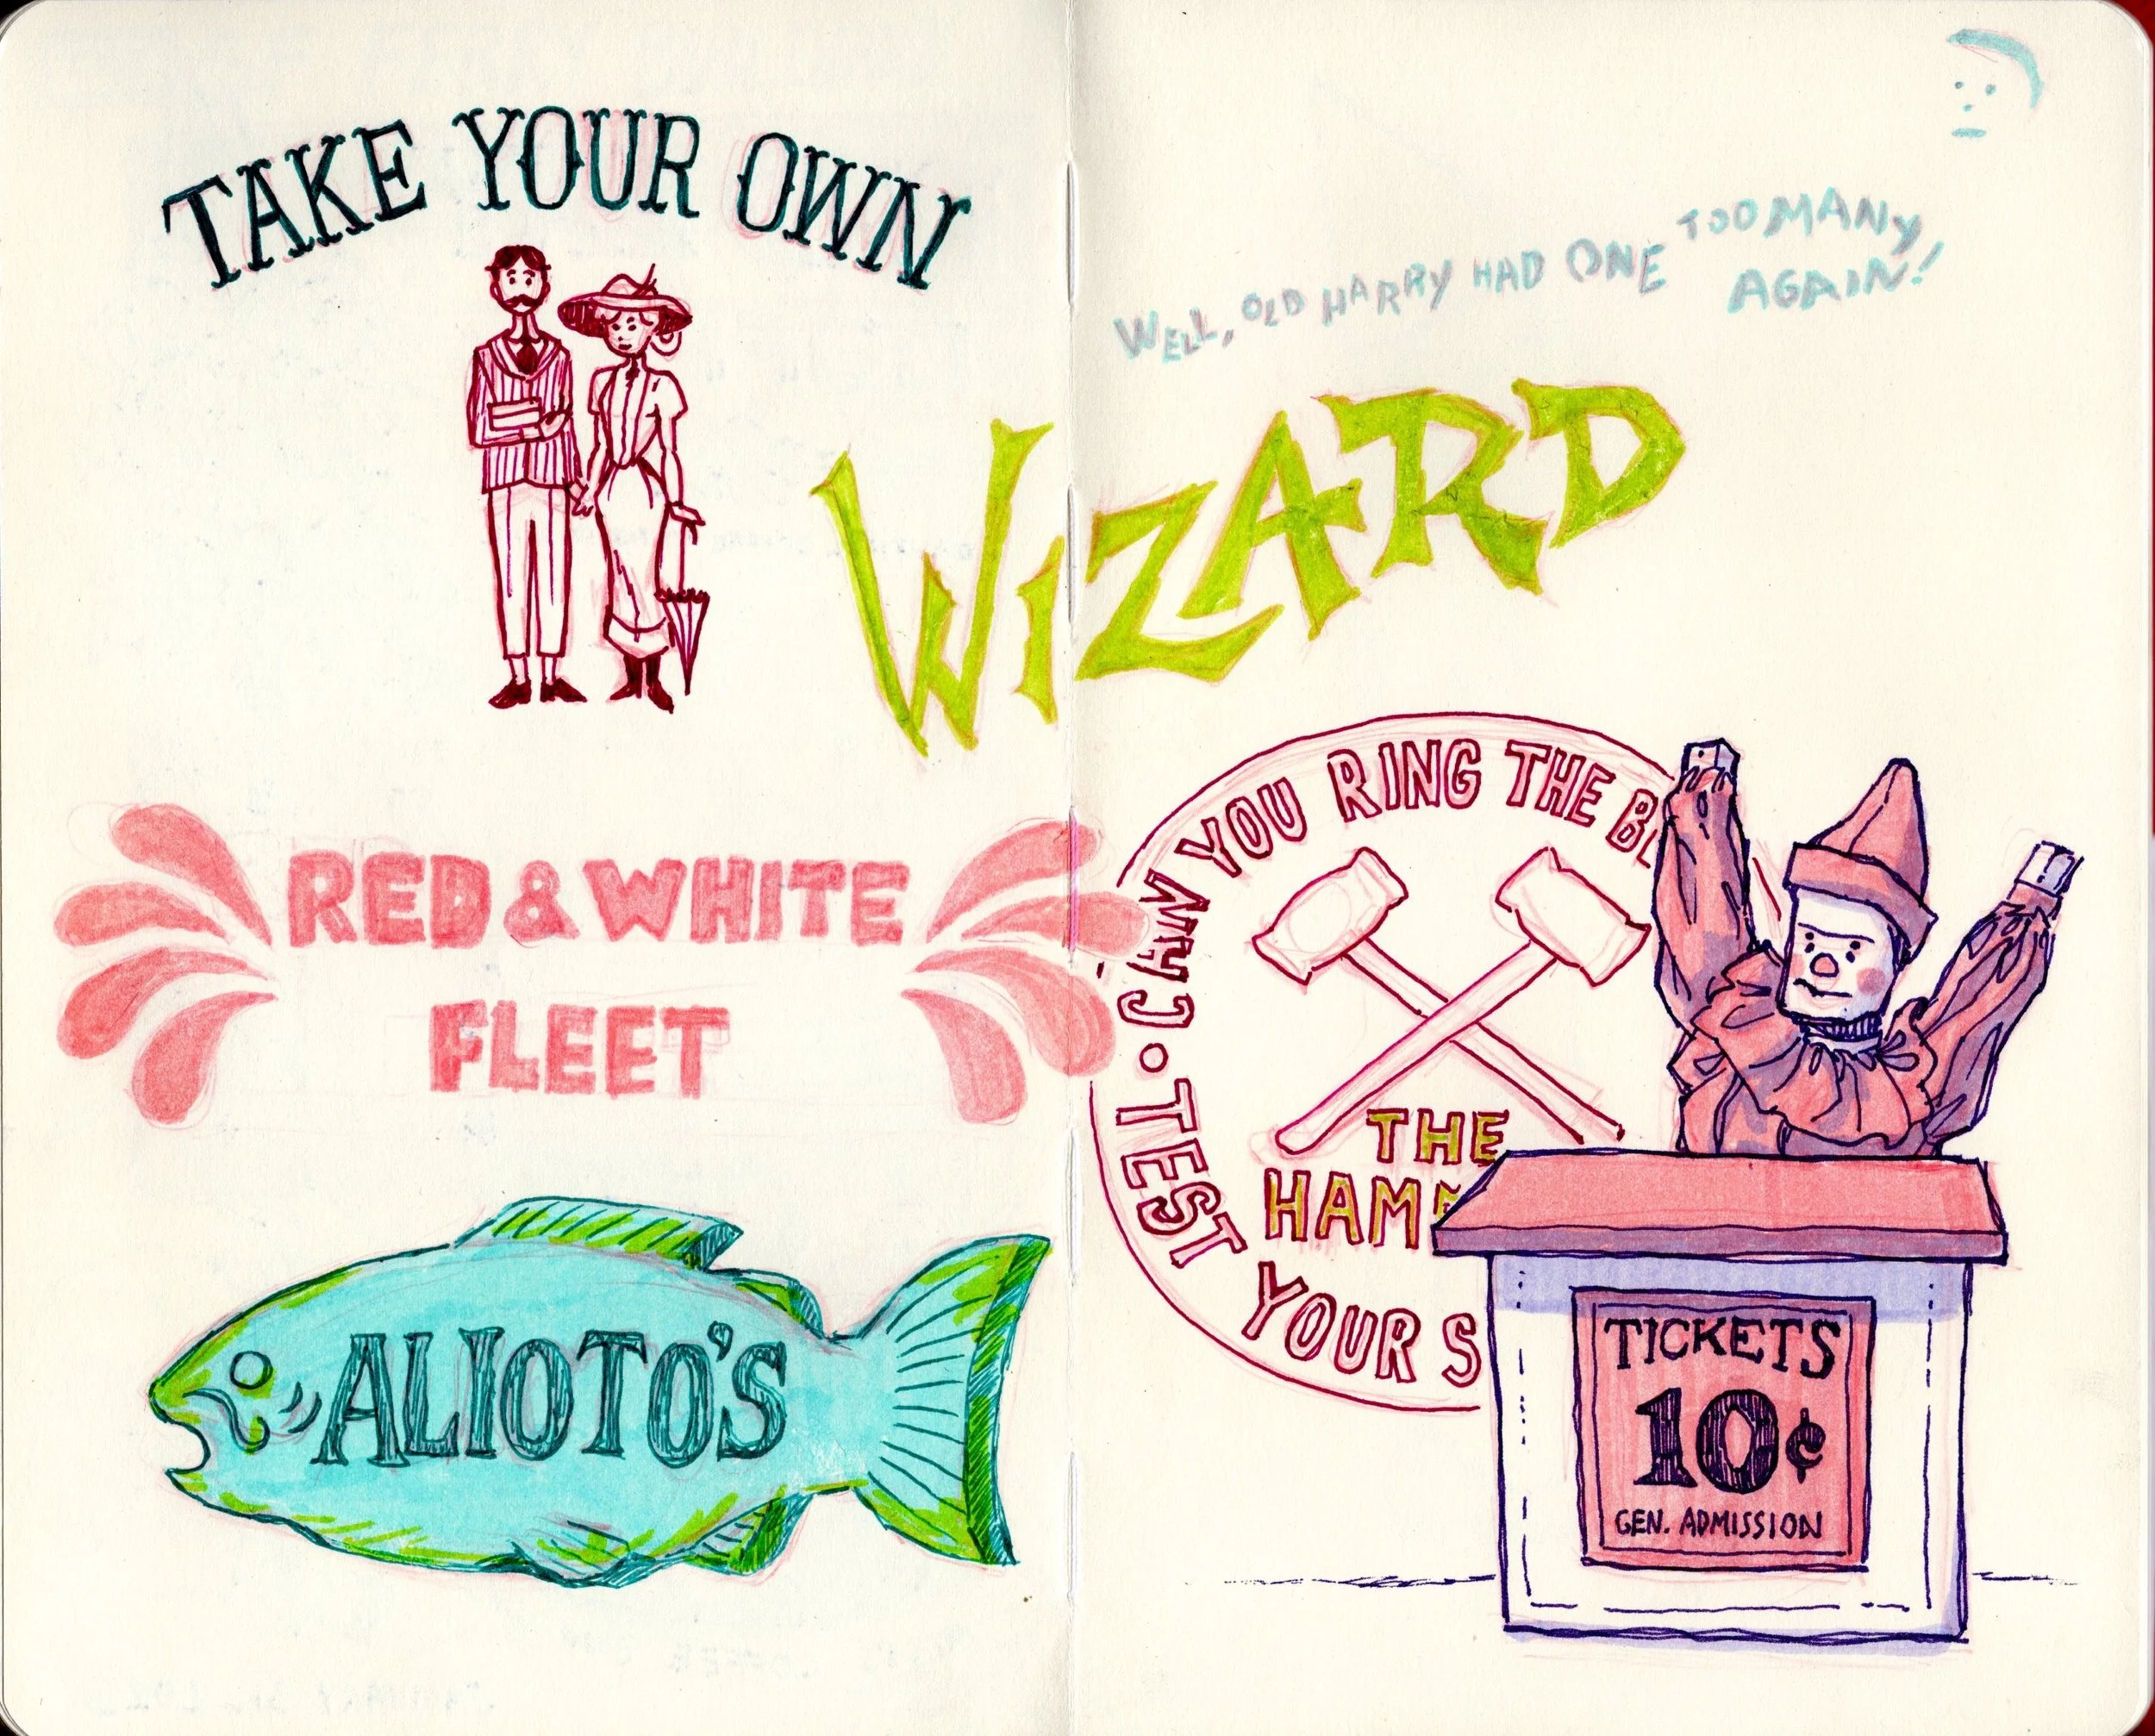 TAKE YOUR OWN
WELL, OLD HARRY HAD ONE TOO MANY
AGAIN!
WIZARD
RED & WHITE
FLEET
ALIOTO'S
• CAN YOU RING THE
• TEST YOUR S
THE
TICKETS
10¢
GEN. ADMISSION